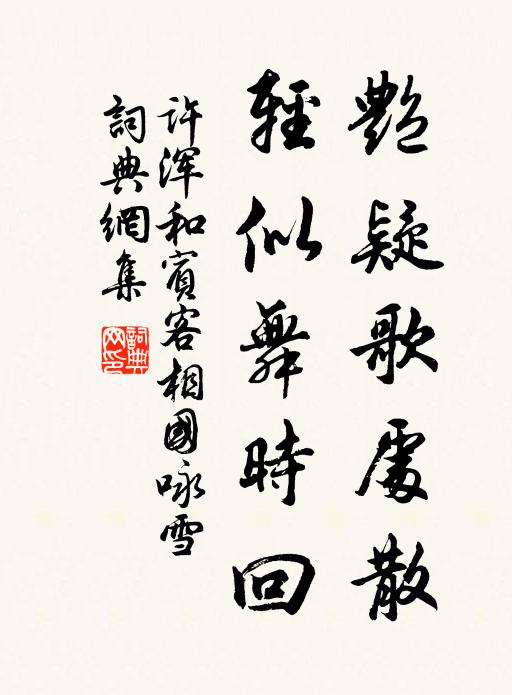 艷疑歌處散
輕似舞時回
許渾和賓客相國咏雪
詞典網集
詞典网印